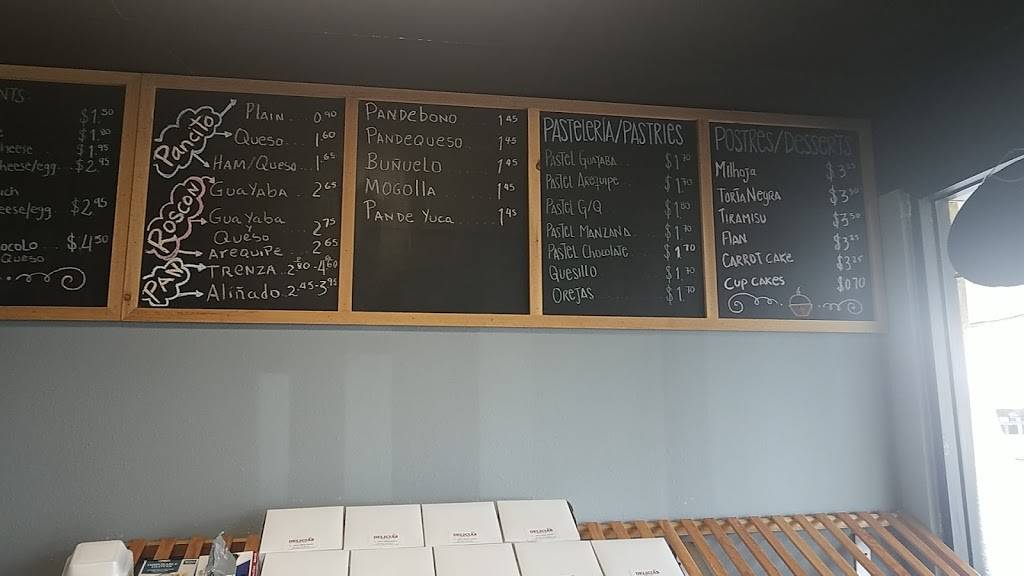 NTS
$1.50
$1.80
heese $1.95
heese/egg $2.95
ch
eese/egg $2.95
ocolo $4.50
Queso
Pancito
Plain 0.90
Queso 1.60
Ham/Queso 1.65
Pan Roscon
Guayaba 2.65
Guayaba
Queso 2.75
Arequipe 2.65
Trenza 2.80-4.60
Aliñado 2.45-3.95
Pandebono 1.45
Pandequeso 1.45
Buñuelo 1.45
Mogolla 1.45
Pande Yuca 1.45
PASTELERÍA/PASTRIES
Pastel Guayaba $1.70
Pastel Arequipe $1.70
Pastel G/Q $1.80
Pastel Manzana $1.70
Pastel Chocolate $1.70
Quesillo $1.70
Orejas $1.70
POSTRES/DESSERTS
Milhoja
Torta Negra $3.50
Tiramisu $3.50
Flan $3.25
Carrot Cake $3.25
Cup Cakes $0.70
DELICIAS
DELICIAS
DELICIAS
DELICIAS
DELICIAS